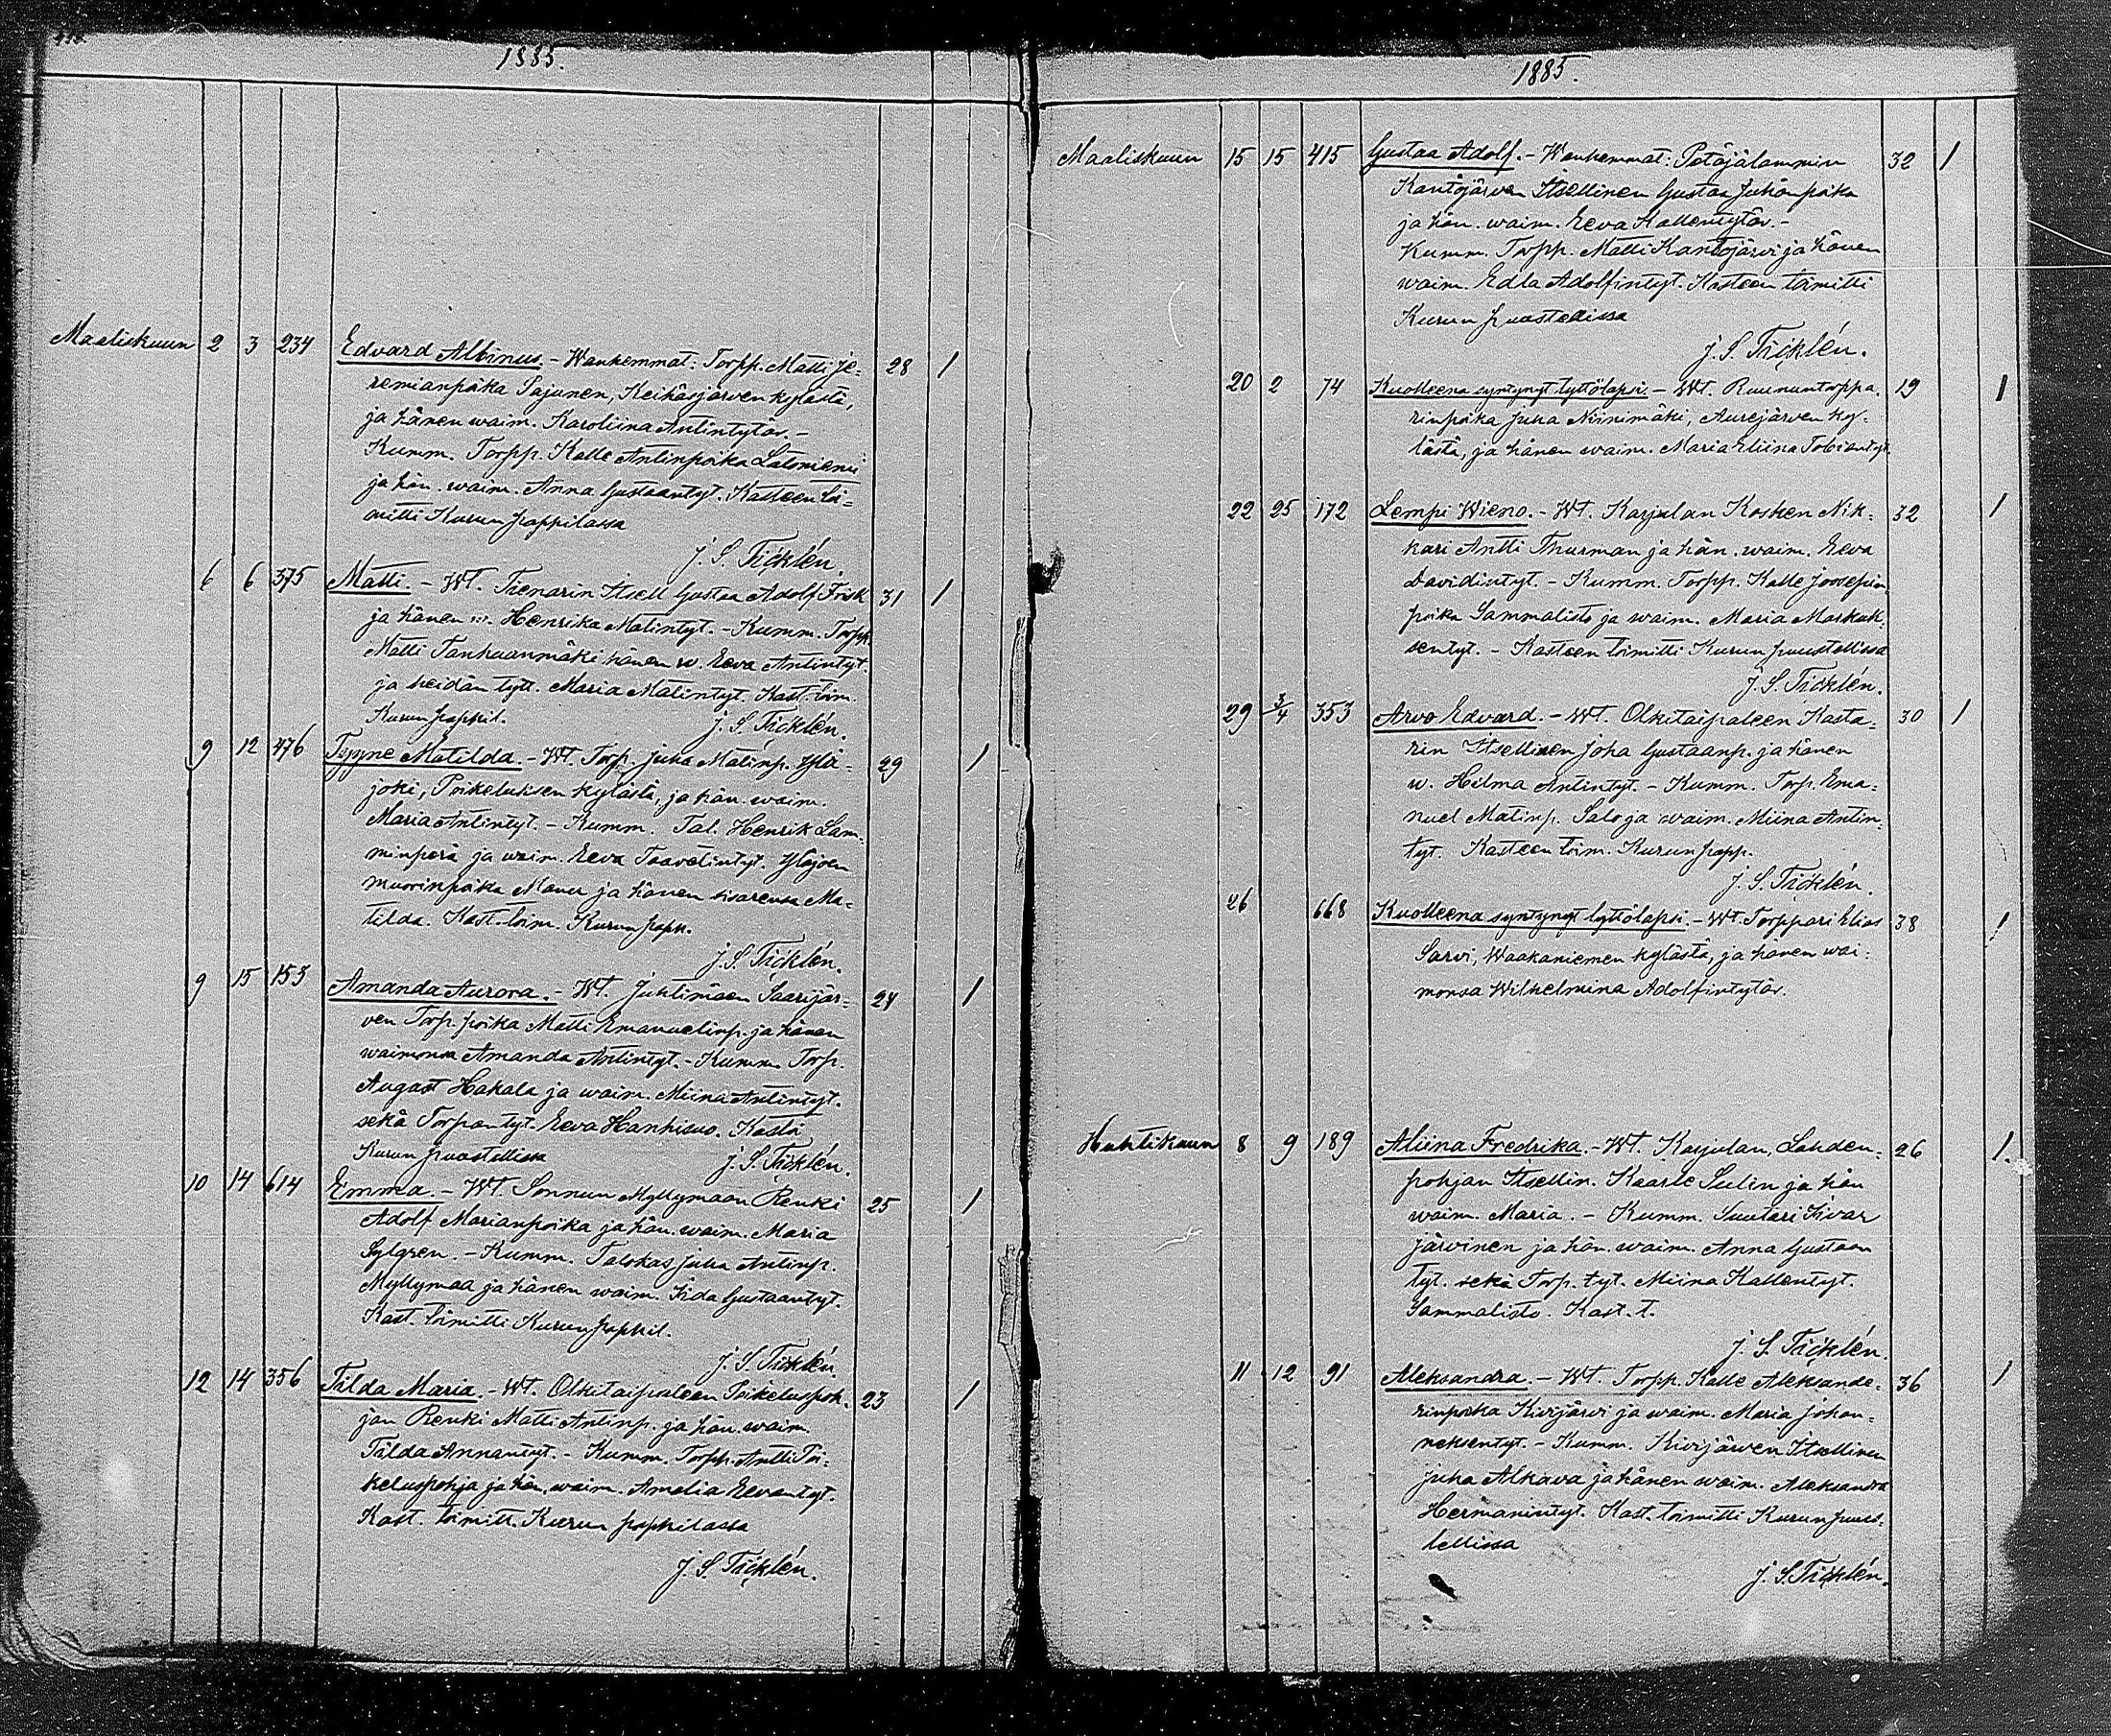 1885.
Maaliskuun 2 3 234 Edvard Albinus. - Wanhemmat: Torpp. Matti Je= 28 1
remianpoika Pajunen, Keihäsjärven kylästä,
ja hänen waim. Karoliina Antintytär. -
Kumm. Torpp. Kalle Antinpoika Latoniemi
ja hän. waim. Anna Gustaantyt. Kasteen toi=
mitti Kurun pappilassa
J. S. Ticklén.
6 6 375 Matti. - Wt. Tienarin Itsell Gustaa Adolf Frisk 31 1
ja hänen w. Henrika Matintyt. - Kumm. Torpp.
Matti Tanhuanmäki hänen w. Eeva Antintyt.
ja heidän tytt. Maria Matintyt. Kast. toim.
Kurun pappil. J. S. Ticklén.
9 12 476 Tyyne Matilda. - Wt. Torp. Juha Matinp. Ylä= 29 1
joki, Poikeluksen kylästä, ja hän. waim.
Maria Antintyt. - Kumm. Tal. Henrik Lam=
minperä ja waim. Eeva Taavetintyt. Yläjoen
muorinpoika Manu ja hänen sisarensa Ma=
tilda. Kast. toim. Kurun papp.
J. S. Ticklén.
9 15 153 Amanda Aurora. - Wt. Juhtimäen Saarijär= 24 1
ven Torp. poika Matti Emanuelinp. ja hänen
waimonsa Amanda Antintyt. - Kumm. Torp.
August Hakala ja waim. Miina Antintyt.
sekä Torpan tyt. Eeva Hanhisuo. Kastoi
Kurun puustellissa J. S. Ticklén.
10 14 614 Emma. - Wt. Sonnun Myllymaan Renki 25 1
Adolf Marianpoika ja hän. waim. Maria
Sylgren. - Kumm. Talokas Juha Antinp.
Myllymaa ja hänen waim. Iida Gustaantyt.
Kast. toimitti Kurun pappil.
J. S. Ticklén.
12 14 356 Tilda Maria. - Wt. Olkitaipaleen Poikeluspoh= 23 1
jan Renki Matti Antinp. ja hän. waim.
Tilda Annantyt. - Kumm. Torpp. Antti Poi=
keluspohja ja hän. waim. Amalia Eevantyt.
Kast. toimitt. Kurun pappilassa
J. S. Ticklén.
1885.
Maaliskuun 15 15 415 Gustaa Adolf. - Wanhemmat: Petäjälammin 32 1
Kantojärven Itsellinen Gustaa Juhanpoika
ja hän. waim. Eeva Kallentytär. -
Kumm. Torpp. Matti Kantojärvi ja hänen
waim. Edla Adolfintyt. Kasteen toimitti
Kurun puustellissa
J. S. Ticklén.
20 2 74 Kuolleena syntynyt tyttölapsi. - Wt. Ruununtorppa= 19 1
rinpoika Juha Niinimäki, Aurejärven ky=
lästä, ja hänen waim. Maria Eliina Tobiantyt.
22 25 172 Lempi Wieno. - Wt. Karjulan Kosken Nik= 32 1
kari Antti Thurman ja hän. waim. Eeva
Davidintyt. - Kumm. Torpp. Kalle Joosepin=
poika Sammalisto ja waim. Maria Markuk=
sentyt. - Kasteen toimitti Kurun puustellissa
J. S. Ticklén.
29 3/4 353 Arvo Edvard. - Wt. Olkitaipaleen Kasta= 30 1
rin Itsellinen Joha Gustaanp. ja hänen
w. Hilma Antintyt. - Kumm. Torp. Ema=
nuel Matinp. Salo ja waim. Miina Antin=
tyt. Kasteen toim. Kurun papp.
J. S. Ticklén.
26 668 Kuolleena syntynyt tyttölapsi. - Wt. Torppari Elias 38 1
Sarvi, Waakaniemen kylästä, ja hänen wai=
monsa Wilhelmina Adolfintytär.
Huhtikuun 8 9 189 Aliina Fredrika. - Wt. Karjulan, Lahden= 26 1.
pohjan Itsellin. Kaarle Sulin ja hän
waim. Maria. - Kumm. Suutari Iivar
Järvinen ja hän. waim. Anna Gustaan
tyt. sekä Torp. tyt. Miina Kallentyt.
Sammalisto. Kast. t.
J. S. Ticklén.
11 12 91 Aleksandra. - Wt. Torpp. Kalle Aleksande= 36 1
rinpoika Kivijärvi ja waim. Maria Johan=
neksentyt. - Kumm. Kivijärven Itsellinen
Juha Alkava ja hänen waim. Aleksandra
Hermanintyt. Kast. toimitti Kurun puus=
tellissa
J. S. Ticklén.